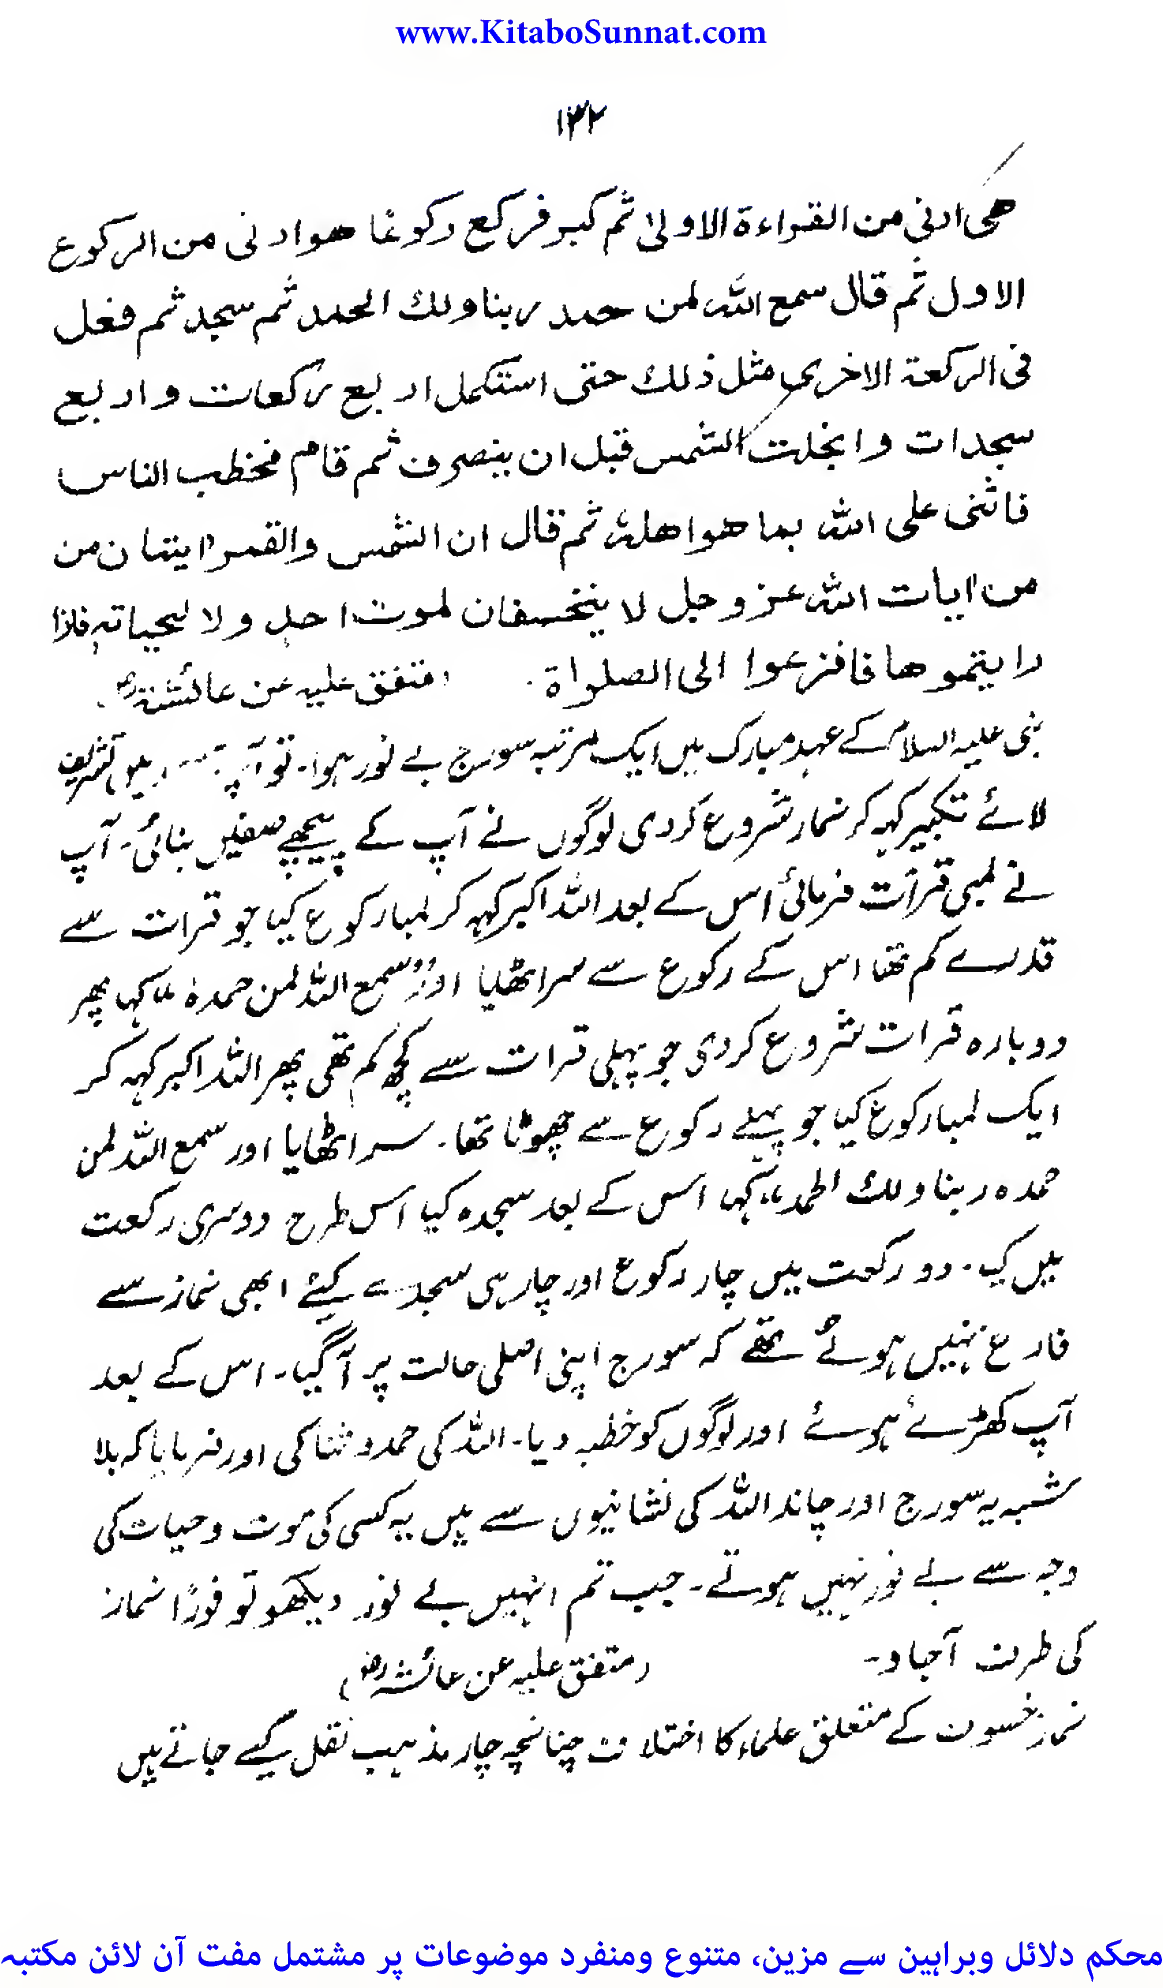 www.KitaboSunnat.com
۱۳۲
هی ادنی من القراءة الاولیٰ ثم کبر فرکع رکوعًا هو ادنی من الرکوع
الاول ثم قال سمع اللہ لمن حمد ربنا ولک الحمد ثم سجد ثم فعل
فی الرکعة الاخریٰ مثل ذلک حتی استکمل اربع رکعات و اربع
سجدات و انجلت الشمس قبل ان ینصرف ثم قام فخطب الناس
فاثنی علی اللہ بما هو اهلہ ثم قال ان الشمس والقمر ایتان من
من ایات اللہ عز و جل لا ینخسفان لموت احد ولا لحیاتہ فاذا
رایتموها فافزعوا الی الصلواة۔ (متفق علیہ عن عائشہؓ)
نبی علیہ السلام کے عہد مبارک میں ایک مرتبہ سورج بے نور ہوا۔ تو آپ میں تشریف
لائے تکبیر کہہ کر نماز شروع کردی لوگوں نے آپ کے پیچھے صفیں بنائی۔ آپ
نے لمبی قرآت فرمائی اس کے بعد اللہ اکبر کہہ کر لمبا رکوع کیا جو قرات سے
قدرے کم تھا اس کے رکوع سے سر اٹھایا اور ”سمع اللہ لمن حمدہ“ کہا پھر
دوبارہ قرات شروع کردی جو پہلی قرات سے کچھ کم تھی پھر اللہ اکبر کہہ کر
ایک لمبا رکوع کیا جو پہلے رکوع سے چھوٹا تھا۔ سر اٹھایا اور سمع اللہ لمن
حمدہ ربنا ولک الحمد“ کہا اس کے بعد سجدہ کیا اس طرح دوسری رکعت
میں کی۔ دو رکعت میں چار رکوع اور چار ہی سجدے کیئے ابھی نماز سے
فارغ نہیں ہوئے تھے کہ سورج اپنی اصلی حالت پر آگیا۔ اس کے بعد
آپ کھڑے ہوئے اور لوگوں کو خطبہ دیا۔ اللہ کی حمد و ثنا کی اور فرمایا کہ بلا
شبہ یہ سورج اور چاند اللہ کی نشانیوں سے ہیں یہ کسی کی موت و حیات کی
وجہ سے بے نور نہیں ہوتے۔ جب تم انہیں بے نور دیکھو تو فورًا نماز
کی طرف آجاؤ۔ (متفق علیہ عن عائشہؓ)
نماز خسوف کے متعلق علماء کا اختلاف چنانچہ چار مذہب نقل کیے جاتے ہیں
محکم دلائل وبراہین سے مزین، متنوع ومنفرد موضوعات پر مشتمل مفت آن لائن مکتبہ